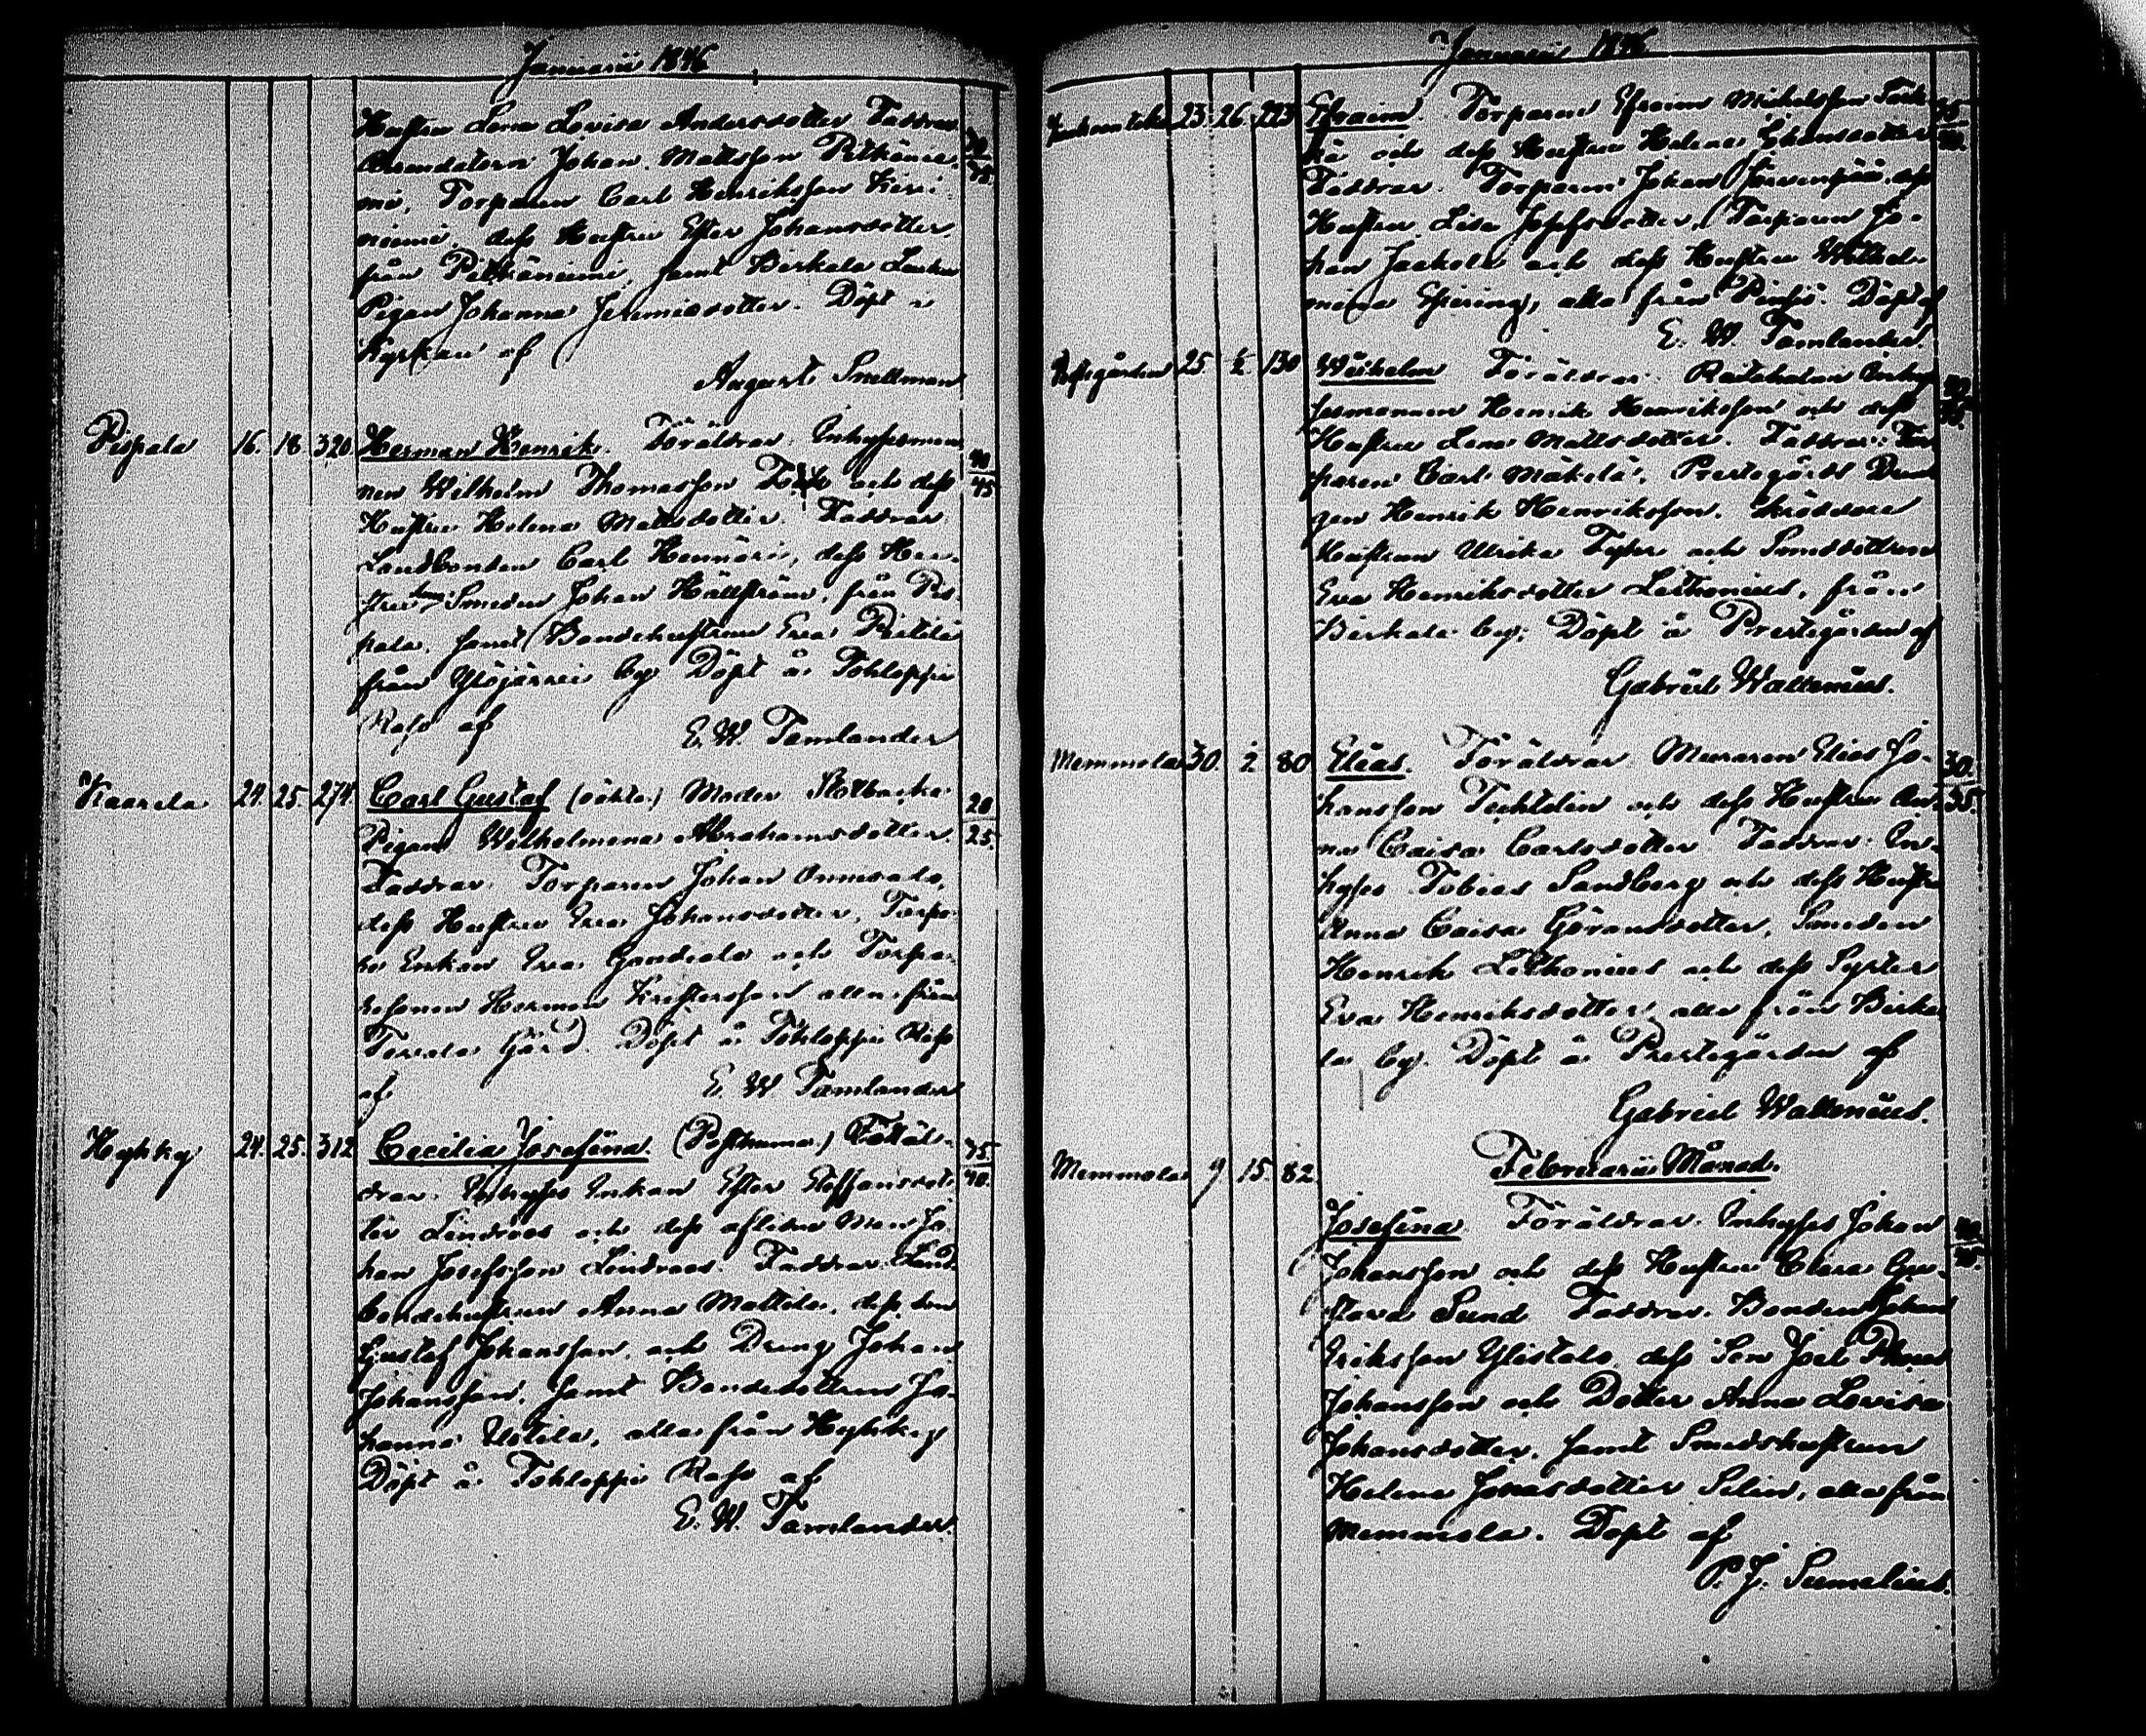 Januarii 1846
Hustru Lena Lovisa Andersdotter Faddrar
Johan Mattsson Pitkänie-
mi, Torparen Carl Henriksson
niemi, dess Hustru Ester Johansdotter
från Pitkäniemi, samt Birkala
Pigan Johanna Jeremiasdotter. Döpt i
Kyrkan af
August Snellman
Pispala 16. 18 320 Herman Henrik. Föräldrar Inhysesman
nen Wilhelm Thomasson och dess 40/45
Hustru Helena Mattsdotter. Faddrar
Landbonden Carl Hennäri, dess Hu-
stru, Smeden Johan Hällström, från Pis
pala, samt Bondehustrun Eva Pietilä
från Ylöjärvi by Döpt å Tohloppi
Raho af E. W. Tamlander
Kaarila 24. 25. 274 Carl Gustaf (oäkta) Moder
Pigan Wilhelmina Abrahamsdotter. 20/25
Faddrar Torparen Johan
dess Hustru Eva Johansdotter, Torpa-
re Enkan Eva och Torpa-
resonen Herman alla från
Gård. Döpt å Tohloppi Raho
af E. W. Tamlander
Hyhky 24. 25. 312 Cecilia Josefina. (Posthuma) Föräl-
drar. Inhyses Enkan Ester Steffansdot- 35/40
ter Lindroos och dess aflidne Man Jo
han Josefsson Lindroos. Faddrar Land
bondehustrun Anna Mattila, dess son
Gustaf Johansson, och Dreng Johan
Johansson, samt Bondedottren Jo-
hanna Uotila, alla från Hyhky
Döpt å Tohloppi Raho af
E. W. Tamlander.
Januarii 1846
23 26 223 Efraim. Torparen Efraim Michelsson
kä och dess Hustru Helena Johansdotter
Faddrar. Torparen Johan Järvenpää, dess
Hustru Lisa Josefsdotter, Torparen Jo-
han Jaakola och dess Hustru Wilhel-
mina alla från Pinsiö. Döpt af
E. W. Tamlander.
25 130 Wilhelm Föräldrar Inhy
sesmannen Henrik Henriksson och dess
Hustru Lena Mattsdotter. Faddrar: Tor
paren Carl Mäkelä, Prestegårds Dren
gen Henrik Henriksson. Skräddare
Hustrun Ulrika och Smedsdottren
Eva Henriksdotter Lethonius, från
Birkala by; Döpt å Prestegården af
Gabriel Wallenius.
Memmola 30. 2 80 Elias. Föräldrar Muraren Elias Jo- 30/35
hansson och dess Hustru An-
na Caisa Carlsdotter Faddrar. In-
hyses Tobias Sandberg och dess Hustr
Anna Caisa Göransdotter, Smeden
Henrik Lethonius och dess Syster
Eva Henriksdotter alla från Birka
la by. Döpt å Prestegården af
Gabriel Wallenius.
Februarii Månad.
Memmola 9 15. 82
Josefina Föräldrar. Inhyses Johan
Johansson och dess Hustru Clara Gu-
stava Sund Faddrar. Bonden Johan
Eriksson Ylistalo, dess Son Joel
Johansson och Dotter Anna Lovisa
Johansdotter. samt Smedshustrun
Helena Jonasdotter Selin, alla från
Memmola. Döpt af
P. J. Sumelius.